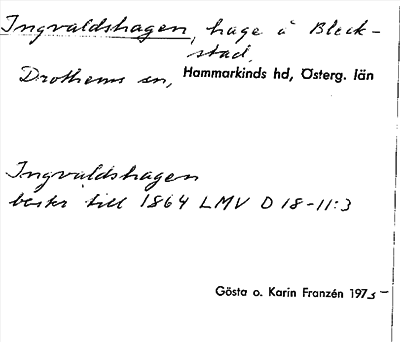 Ingvaldshagen, hage å Bleck-
stad,
Drothems sn, Hammarkinds hd, Österg. län
Ingvaldshagen
till 1864 LMV D 18-11:3
Gösta o. Karin Franzén 1975